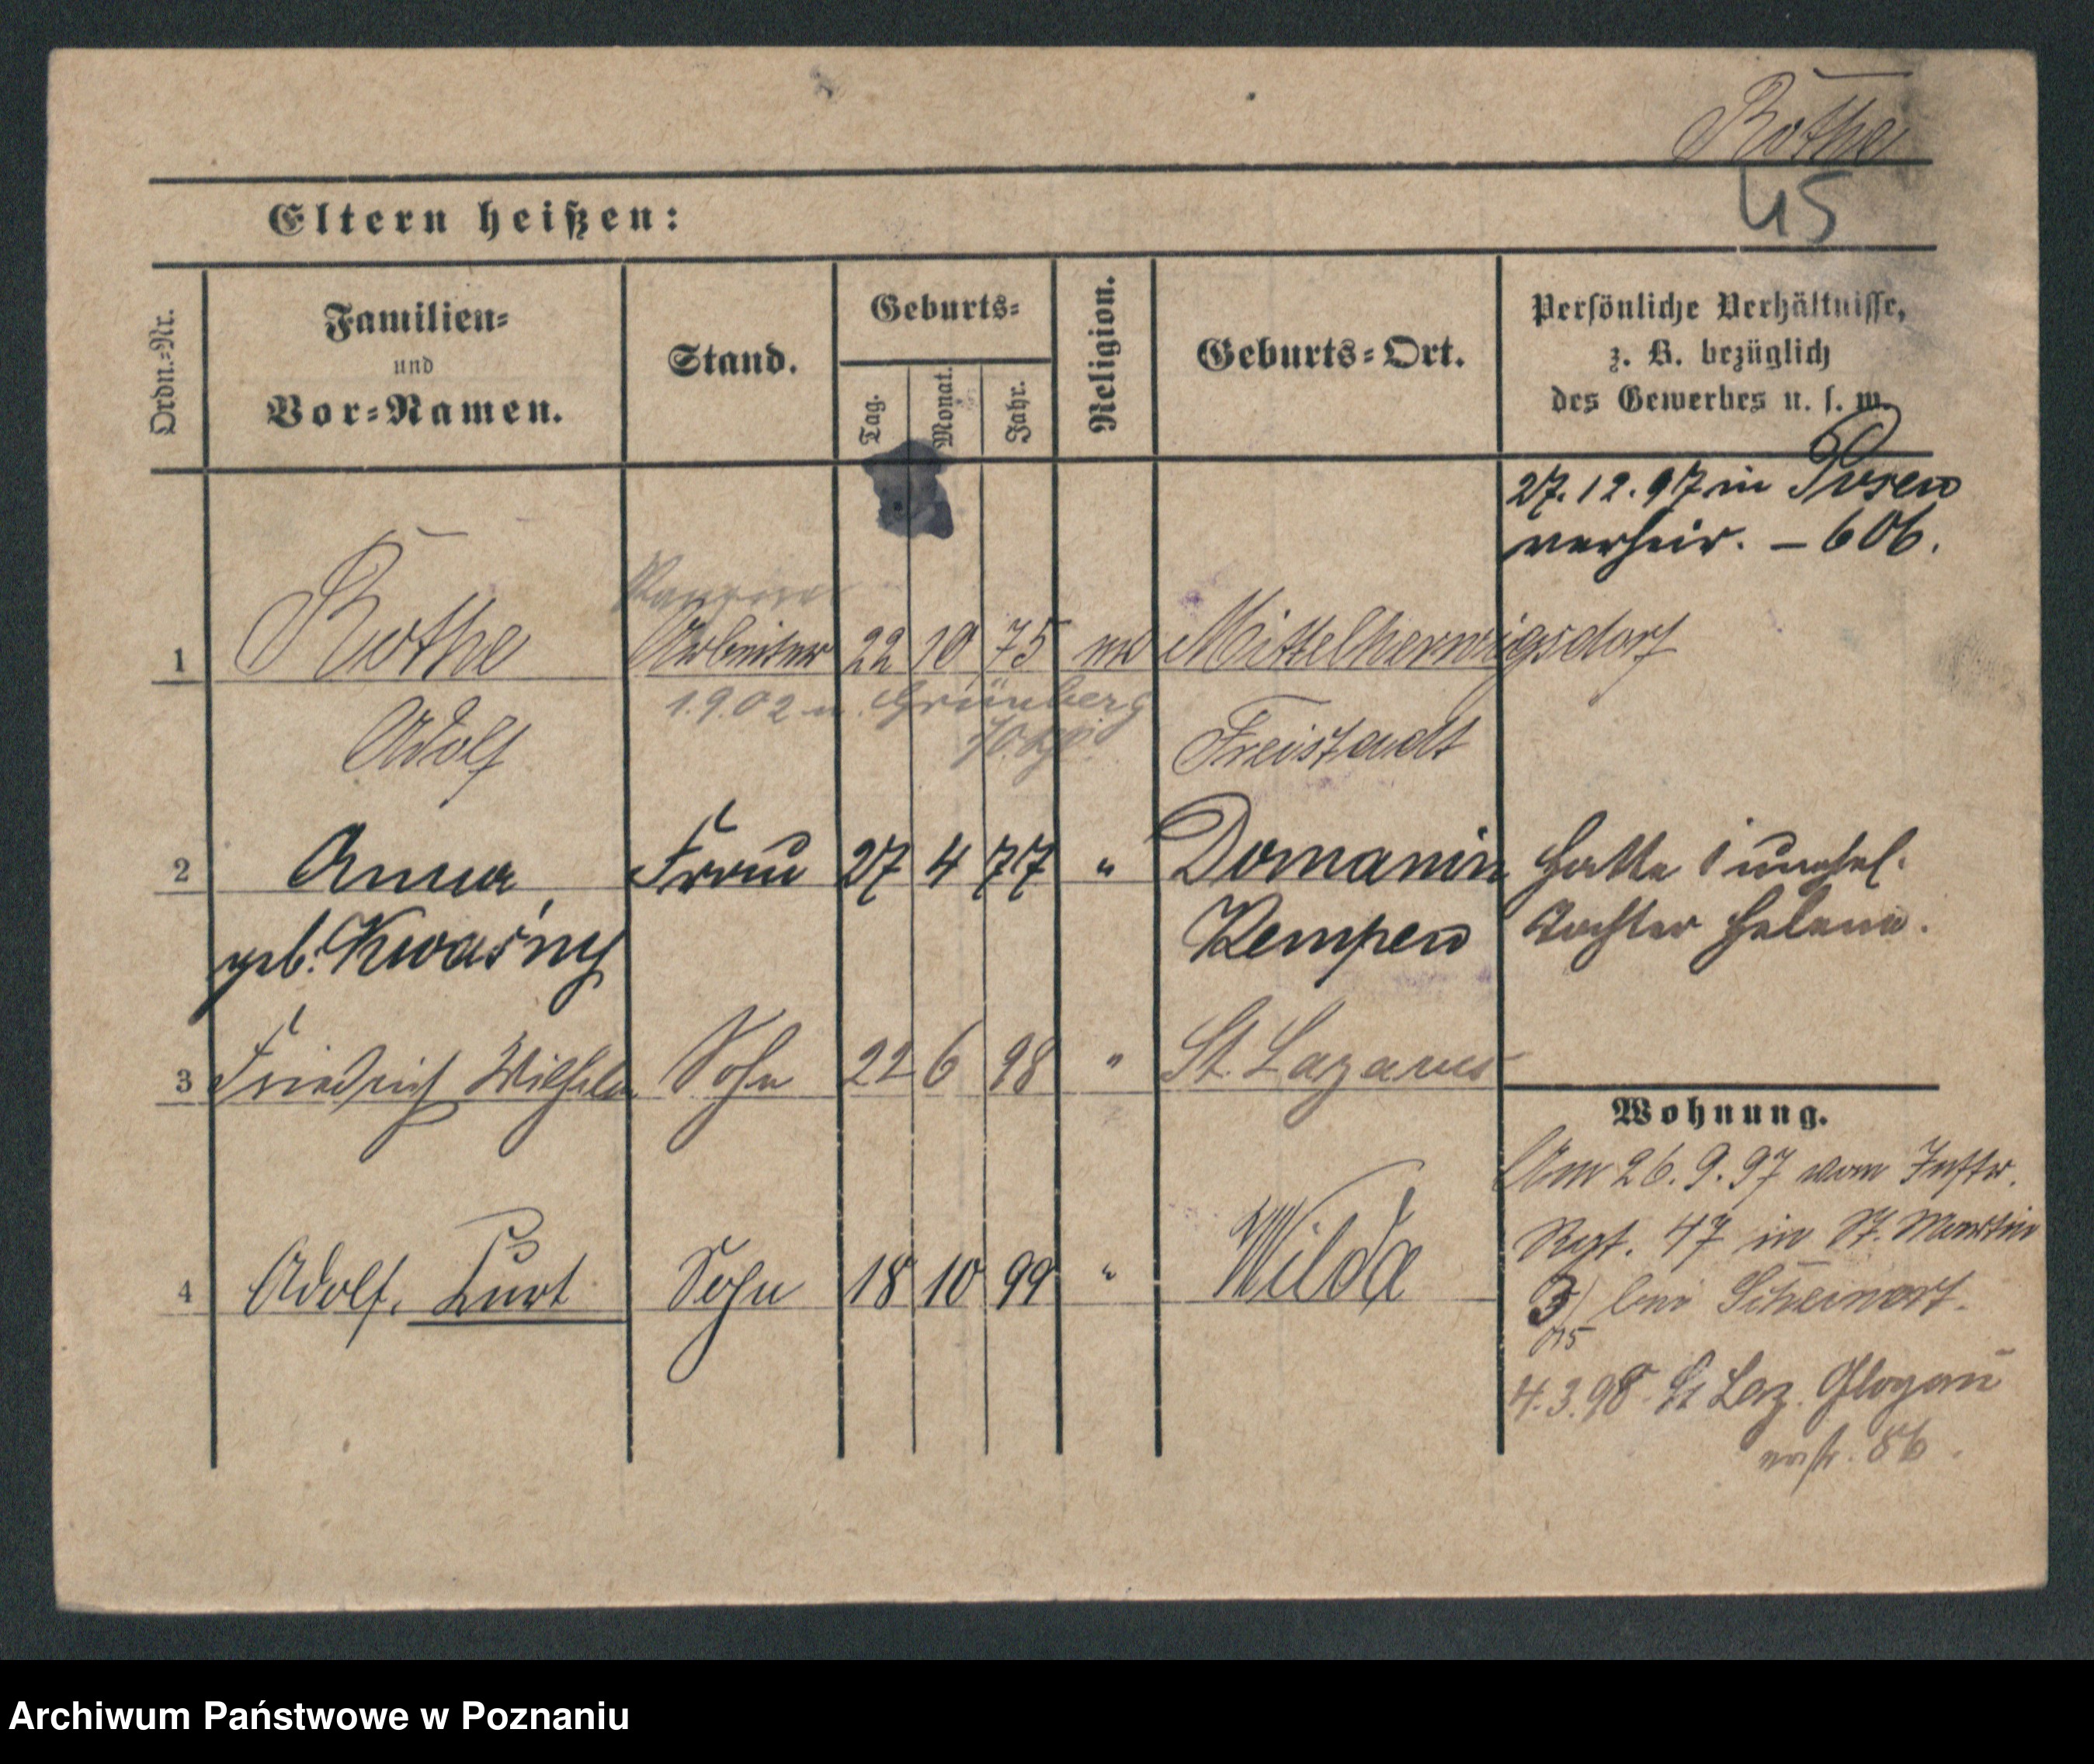 Rothe
45
Eltern heißen:
Ordn.-Nr.
Familien-
und
Vor-Namen.
Stand.
Geburts-
Tag.
Monat.
Jahr.
Religion.
Geburts-Ort.
Persönliche Verhältnisse,
z. B. bezüglich
des Gewerbes u. s. w.
27.12.97 in Posen
verheir. - 606.
1 Rothe Arbeiter 22 10 75 Mittelherwigsdorf
1.9.02 n. Grünberg
Adolf Freistadt
2 Anna, Frau 27 4 77 " Domanin hatte 1 unehel.
geb. Kwaśny Kempen Tochter Helene.
3 Friedrich Wilhelm Sohn 22 6 98 " St. Lazarus
Wohnung.
Am 26.9.97 vom Inftr.
Regt. 47 in St. Martin
bei
4 Adolf, Kurt Sohn 18 10 99 " Wilda
4.3.98 St Laz. Glogau
erstr. 86.
Archiwum Państwowe w Poznaniu